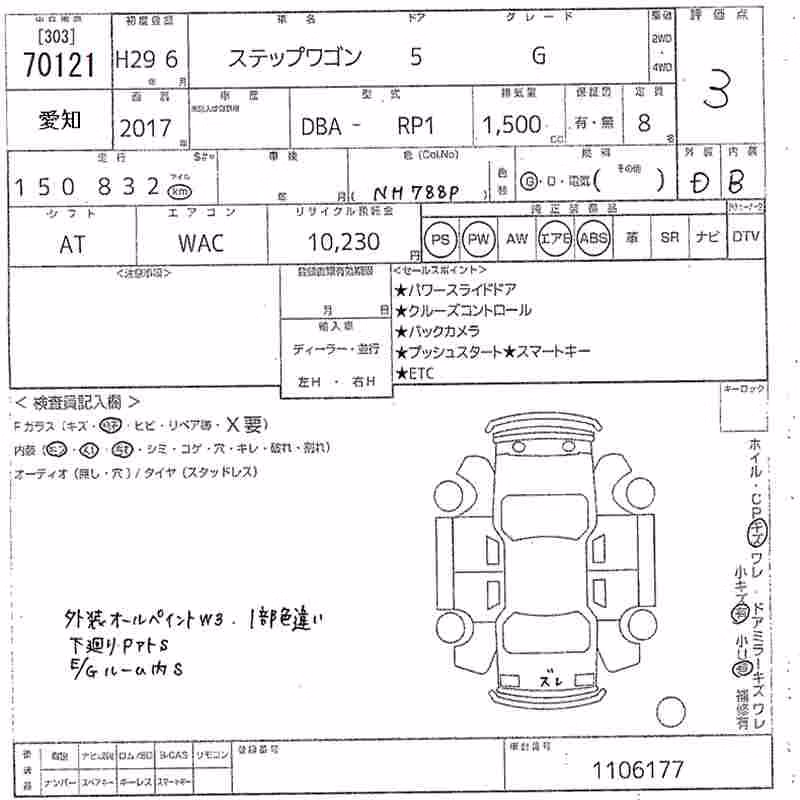 [303] 初度登録 車名 ドア グレード 評価点
70121 H29 6 ステップワゴン 5 G 2WD・4WD 3
年 月
愛知 車歴 型式 排気量 保証図 定員
2017 DBA - RP1 1,500 cc 有・無 8 名
走行 車検 色(Col.No) 燃料 その他 外装 内装
150832 マイル km 年 月 ( NH788P ) G・D・電気( ) D B
シフト エアコン リサイクル預託金 純正装備品
AT WAC 10,230 円 PS PW AW エアB ABS 革 SR ナビ DTV
<注意事項> <セールスポイント>
★パワースライドドア
月 日 ★クルーズコントロール
輸入車 ★バックカメラ
ディーラー・並行 ★プッシュスタート★スマートキー
左H ・ 右H ★ETC
キーロック
< 検査員記入欄 >
Fガラス (キズ・ ・ヒビ・リペア等・X要)
内装 ( ・シミ・コゲ・穴・キレ・破れ・割れ)
オーディオ (無し・穴) / タイヤ (スタッドレス)
ホイル・CPキズワレ ドアミラーキズワレ
小キズ有 小U有 補修有
外装オールペイントW3. 1部色違い
下廻りPアトS
E/Gルーム内S
ズレ
B-CAS リモコン 登録番号 車台番号
ナンバー スペアキー キーレス スマートキー 1106177